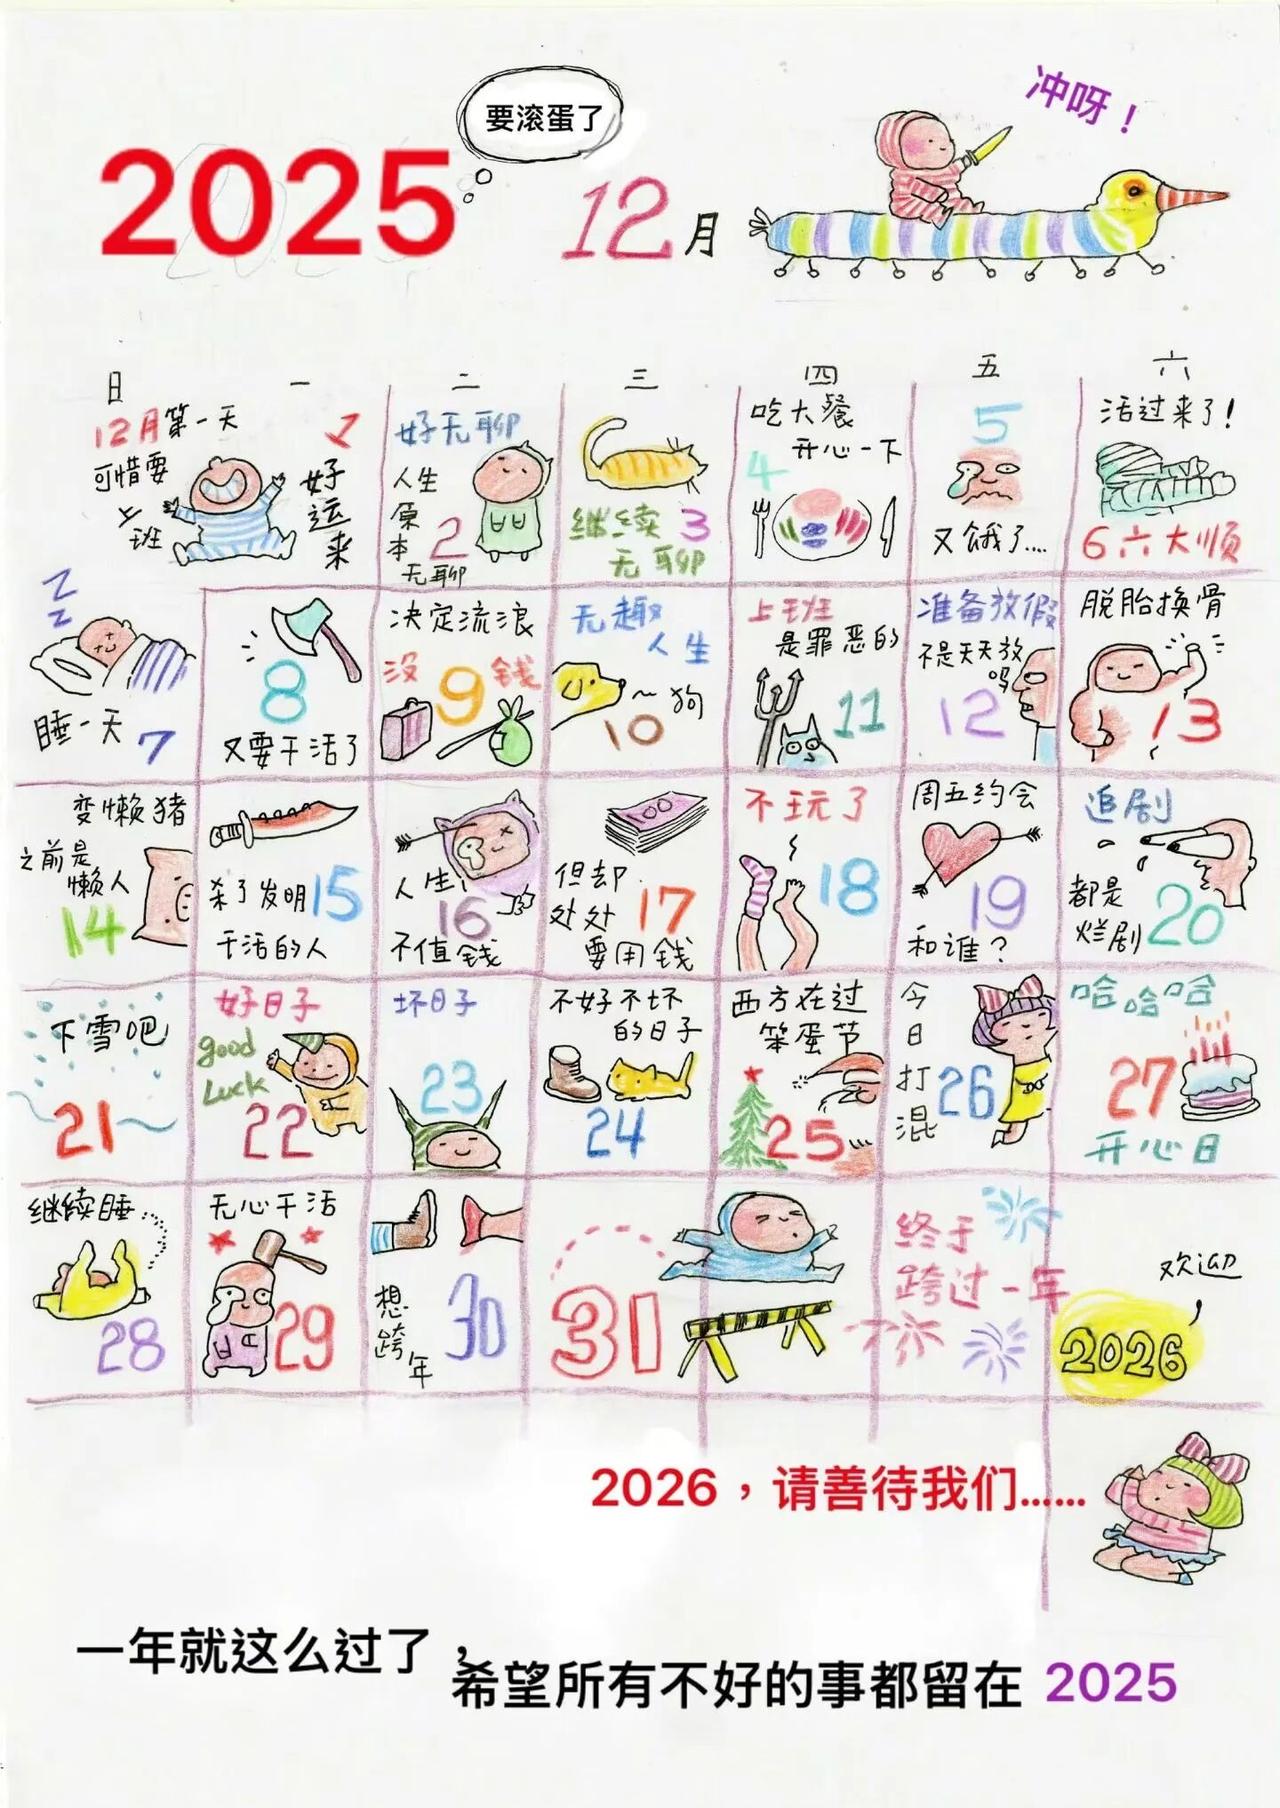 要滚蛋了
冲呀！
2025
12月
日 一 二 三 四 五 六
12月第一天
1
可惜要
上
班
好
运
来
好无聊
人生
原
本
2
无聊
继续 3
无聊
吃大餐
开心一下
4
5
又饿了....
活过来了！
6 六大顺
Z
Z
睡一天 7
8
又要干活了
决定流浪
没 9 钱
无趣
人生
~狗
10
上班
是罪恶的
11
准备放假
不是天天放
吗
12
脱胎换骨
13
变懒猪
之前是
懒人
14
杀了发明 15
干活的人
人生
16
不值钱
100
但却
处处 17
要用钱
不玩了
18
周五约会
19
和谁？
追剧
都是
烂剧 20
下雪吧
21
好日子
good
Luck
22
坏日子
23
不好不坏
的日子
24
西方在过
笨蛋节
25
今
日
打
混
26
哈哈哈
27
开心日
继续睡
28
无心干活
29
想
跨
年
30
31
终于
跨过一年
欢迎
2026
2026，请善待我们……
一年就这么过了，
希望所有不好的事都留在 2025